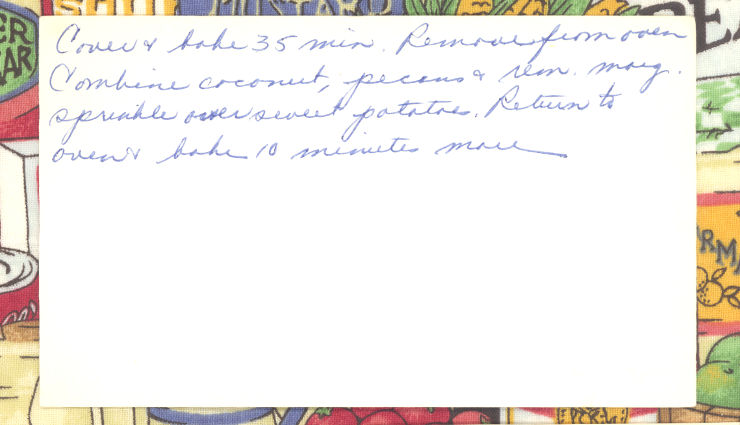 Cover & bake 35 min. Remove from oven
Combine coconut, pecans & rem. marg.
sprinkle over sweet potatoes. Return to
oven & bake 10 minutes more